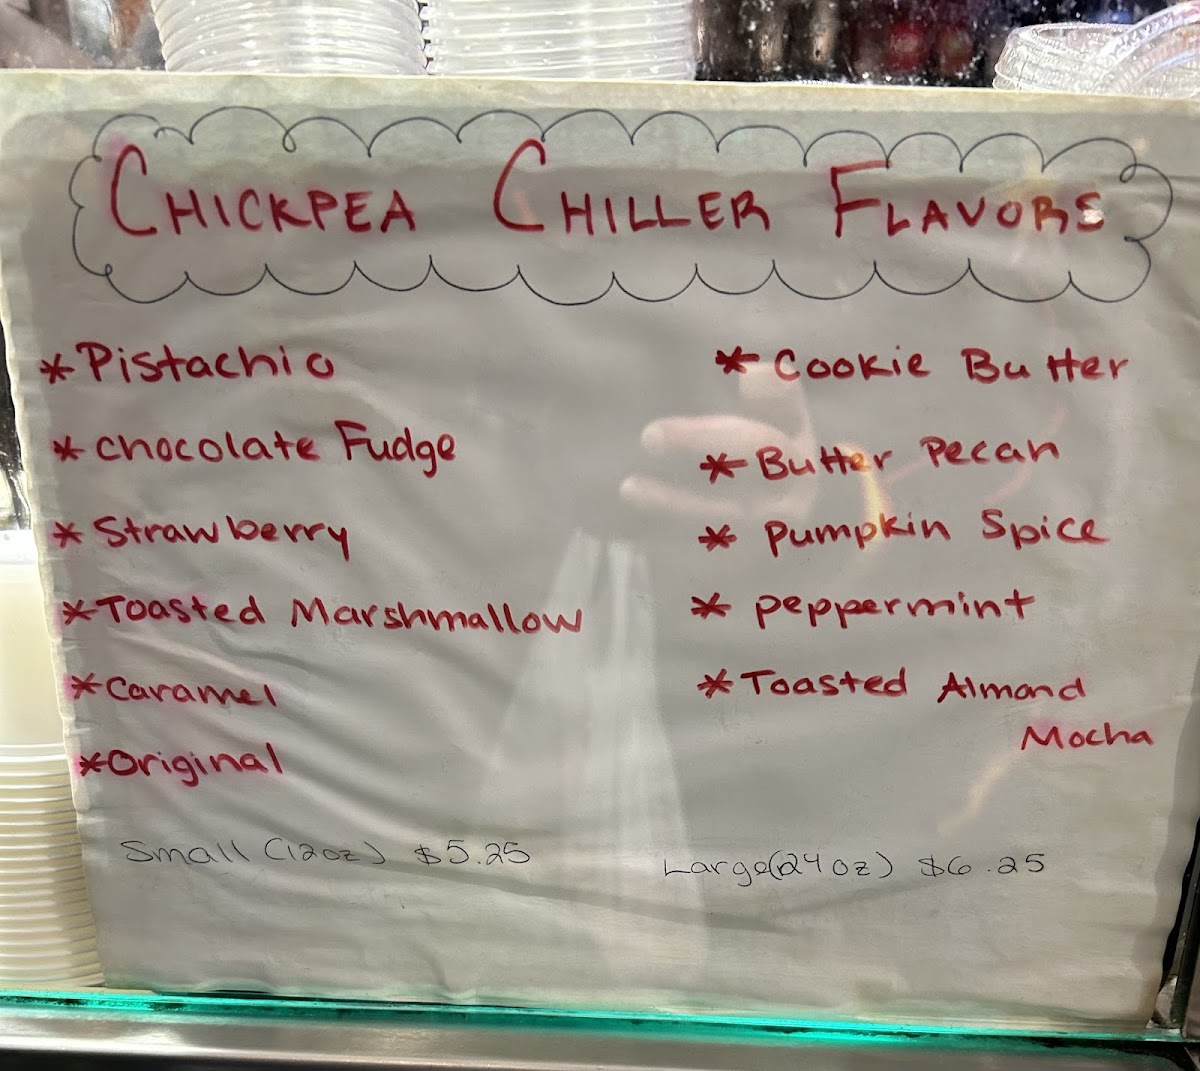 CHICKPEA CHILLER FLAVORS
*Pistachio
*chocolate Fudge
*Strawberry
*Toasted Marshmallow
*Caramel
*Original
*Cookie Butter
*Butter Pecan
*Pumpkin Spice
*peppermint
*Toasted Almond
Mocha
Small (12oz) $5.25
Large(24oz) $6.25